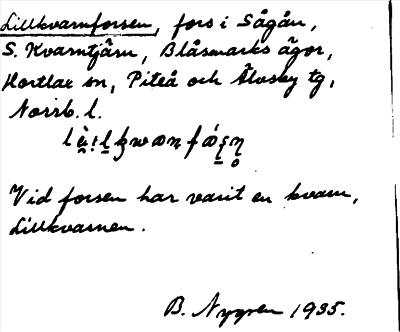 Lillkvarnforsen, fors i Sågån,
S. Kvarntjärn, Blåsmarks ägor,
Hortlax sn, Piteå och Älvsby tg,
Norrb. l.
Vid forsen har varit en kvarn,
Lillkvarnen.
B. Nygren 1935.